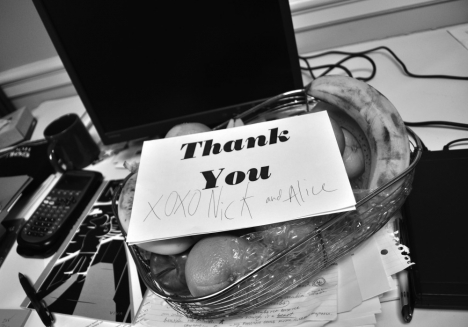 Thank
You
XOXO Nick and Alice